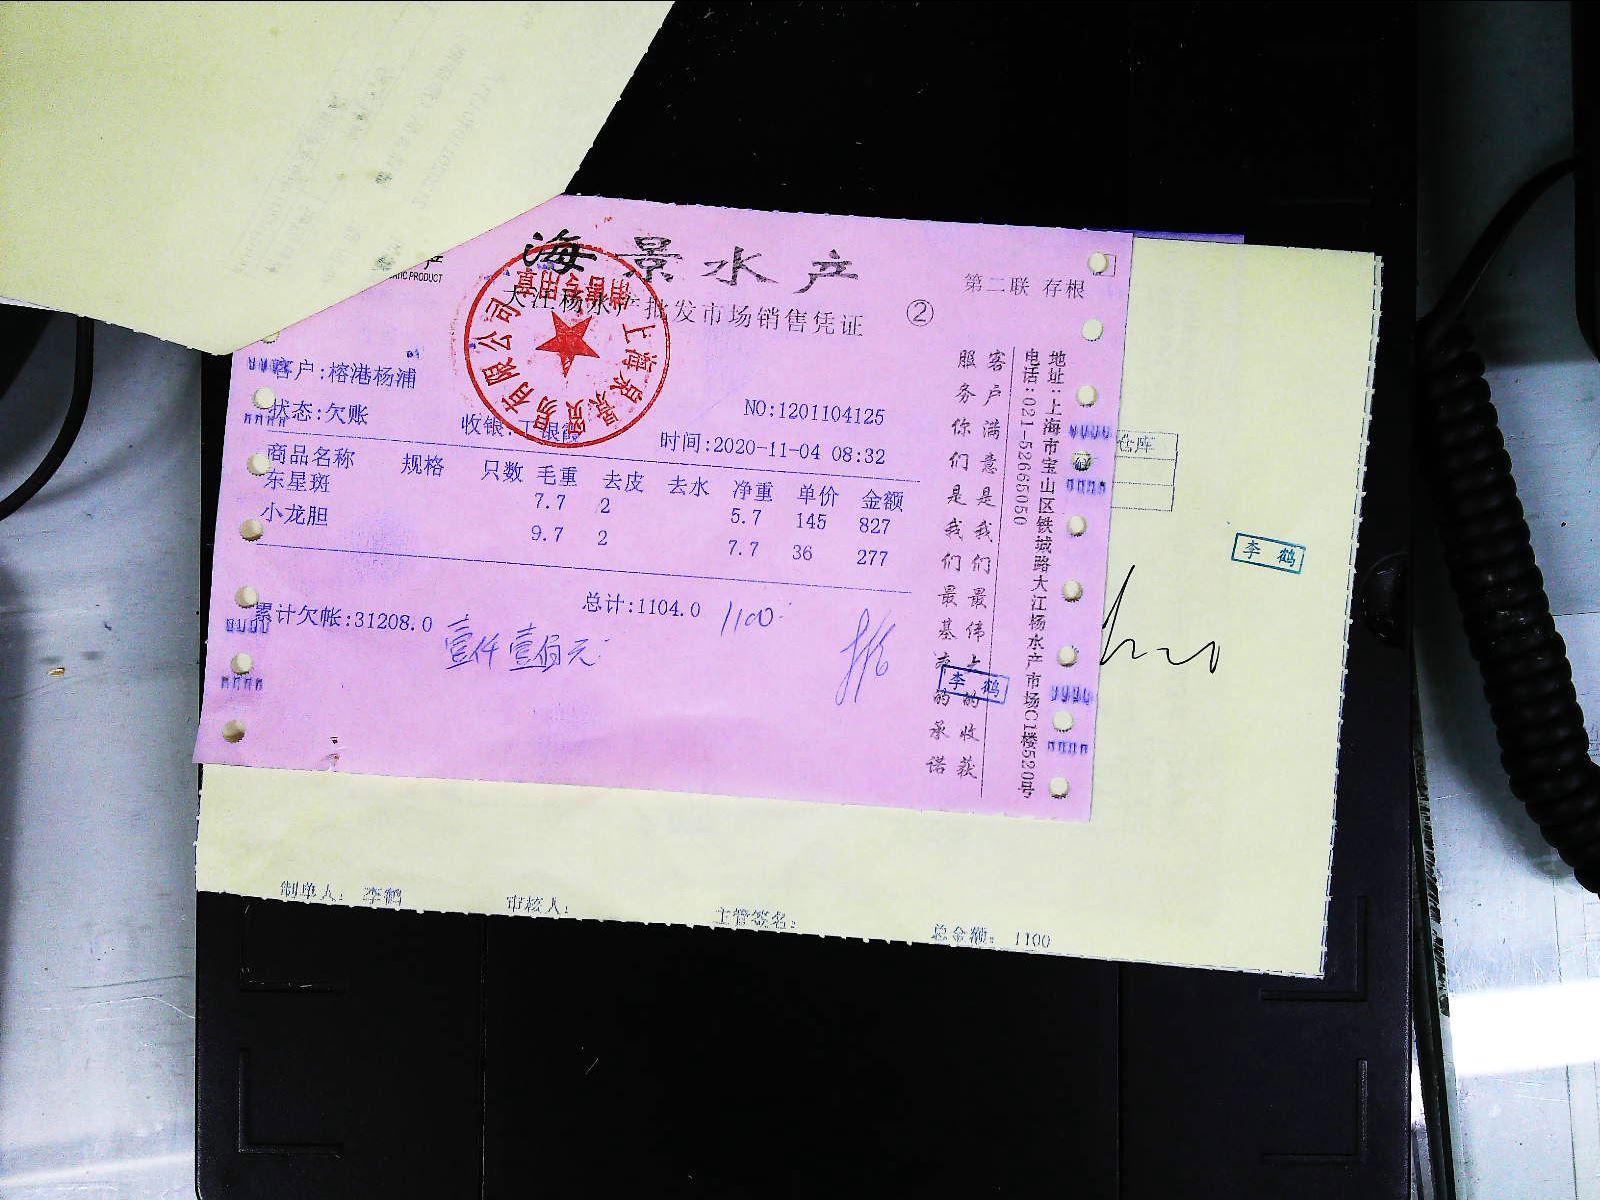 海景水产
PRODUCT
大江杨水产批发市场销售凭证
②
第二联 存根
客户:榕港杨浦
状态:欠账
收银:丁银霞
NO:1201104125
时间:2020-11-04 08:32
商品名称 规格 只数 毛重 去皮 去水 净重 单价 金额
东星斑 7.7 2 5.7 145 827
小龙胆 9.7 2 7.7 36 277
累计欠帐:31208.0
总计:1104.0
1100.
壹仟壹佰元
客户满意是我们最伟大的收获
服务你们是我们最基本的承诺
地址:上海市宝山区铁城路大江杨水产市场C1楼520号
电话:021-52665050
李鹤
仓库
李鹤
制单人: 李鹤
审核人:
主管签名:
总金额: 1100